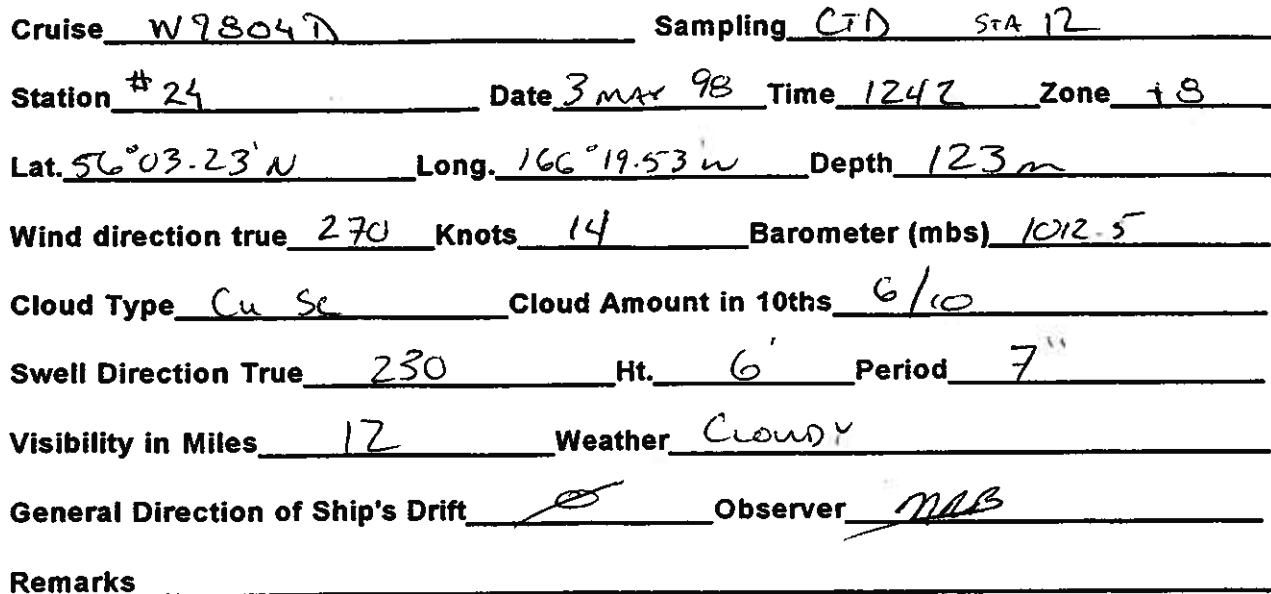 Cruise W9804D Sampling CTD STA 12
Station #24 Date 3 MAY 98 Time 1242 Zone +8
Lat. 56°03.23'N Long. 166°19.53 W Depth 123 m
Wind direction true 270 Knots 14 Barometer (mbs) 1012.5
Cloud Type Cu Sc Cloud Amount in 10ths 6/10
Swell Direction True 230 Ht. 6' Period 7"
Visibility in Miles 12 Weather CLOUDY
General Direction of Ship's Drift Ø Observer
Remarks